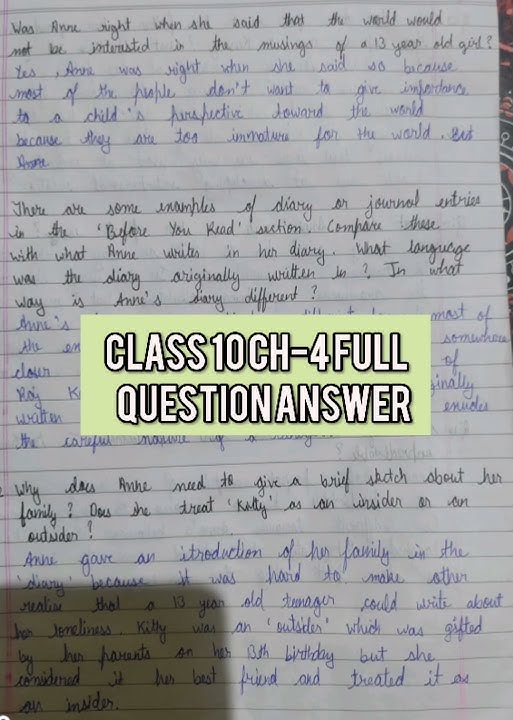 Was Anne right when she said that the world would
not be interested in the musings of a 13 year old girl?
Yes, Anne was right when she said so because
most of the people don't want to give importance
to a child's perspective toward the world
because they are too immature for the world. But
Anne
There are some examples of diary or journal entries
in the 'Before You Read' section. Compare these
with what Anne writes in her diary. What language
was the diary originally written in? In what
way is Anne's diary different?
Anne's most of
the somewhere
closer of
written
CLASS 10 CH-4 FULL
QUESTION ANSWER
the careful of a
Why does Anne need to give a brief sketch about her
family? Does she treat 'Kitty' as an insider or an
outsider?
Anne gave an itroduction of her family in the
'diary' because it was hard to make other
realise that a 13 year old teenager could write about
her loneliness. Kitty was an 'outsider' which was gifted
by her parents on her 13th birthday but she
considered it her best friend and treated it as
an insider.